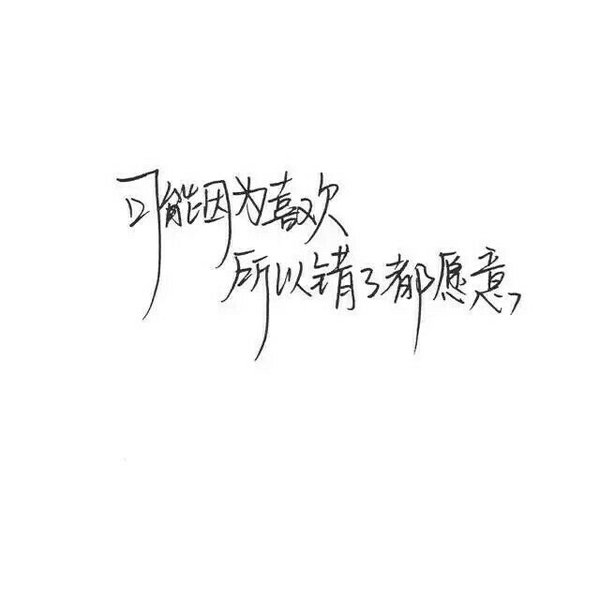 可能因为喜欢
所以错了都愿意